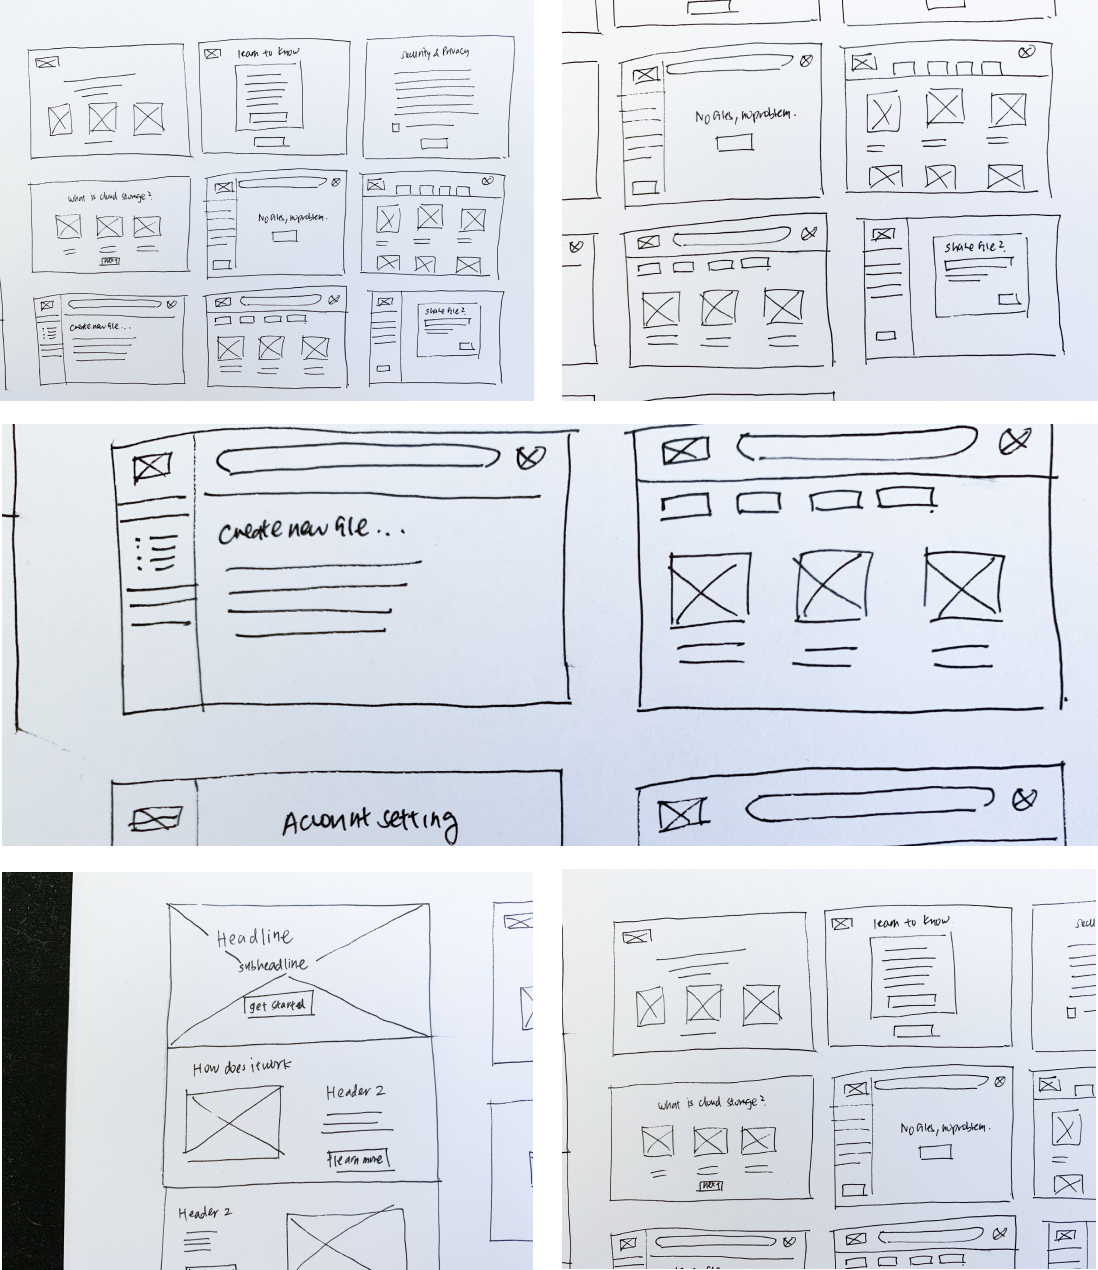 learn to know
Security & Privacy
What is cloud storage?
next
No files, no problem.
create new file...
share file?
No files, no problem.
share file?
create new file...
Account setting
Headline
subheadline
get started
How does it work
Header 2
learn more
Header 2
learn to know
What is cloud storage?
next
No files, no problem.